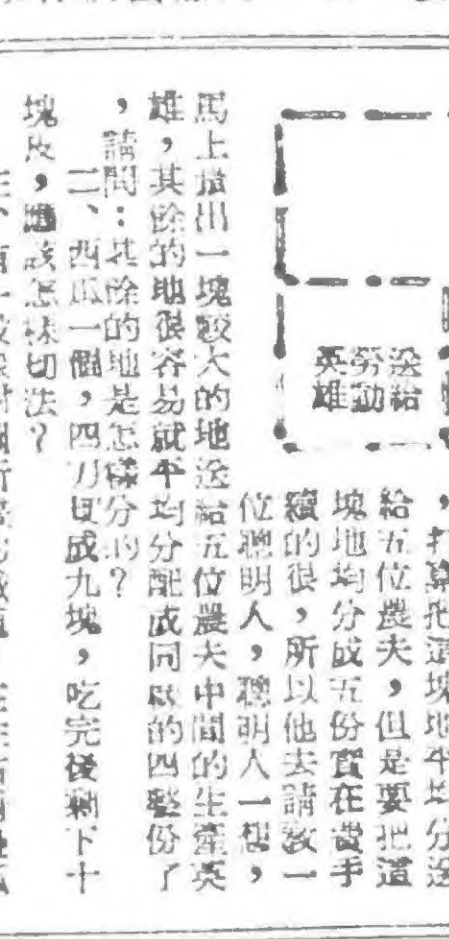 送給
勞動
英雄
，打算把這塊地平均分送
給五位農夫，但是要把這
塊地均分成五份實在費手
續的很，所以他去請敎一
位聰明人，聰明人一想，
馬上撥出一塊較大的地送給五位農夫中間的生產英
雄，其餘的地很容易就平均分配成同樣的四整份了
，請問：其餘的地是怎樣分的？
二、西瓜一個，四刀切成九塊，吃完後剩下十
塊皮，應該怎樣切法？